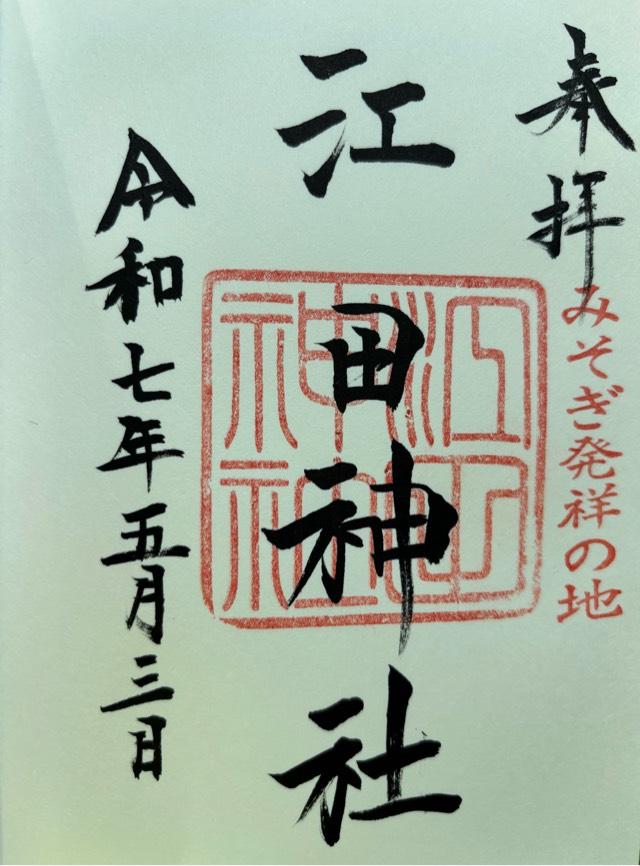 奉拝
みそぎ発祥の地
江田神社
江田
神社
令和七年五月三日